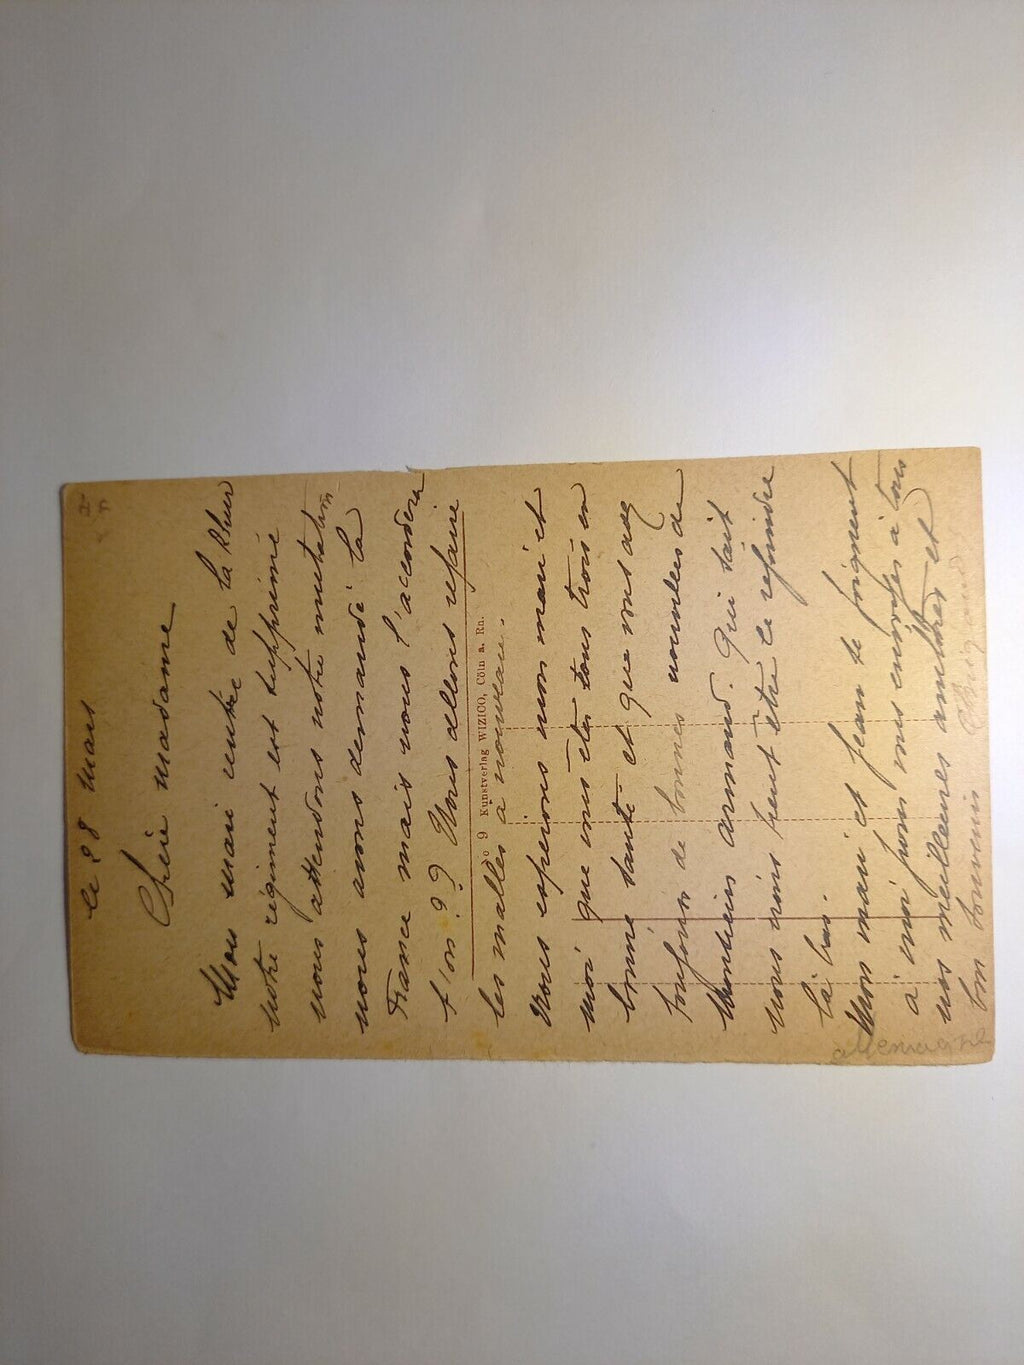 le 28 mars
Chère madame
Mon mari rentre de la Rhur
notre régiment est supprimé
nous attendons notre mutation
nous avons demandé la
France mais nous l'accordera
t'on ?? Nous allons refaire
les malles à nouveau.
Nous espérons mon mari et
moi que vous êtes tous trois en
bonne santé et que vous avez
toujours de bonnes nouvelles de
Monsieur Armand. Qui sait
nous irons peut être le rejoindre
là bas.
Mon mari et Jean se joignent
à moi pour vous envoyer à tous
nos meilleures amitiés et
bon souvenir
N° 9 Kunstverlag WIZICO, Cöln a. Rh.
allemagne